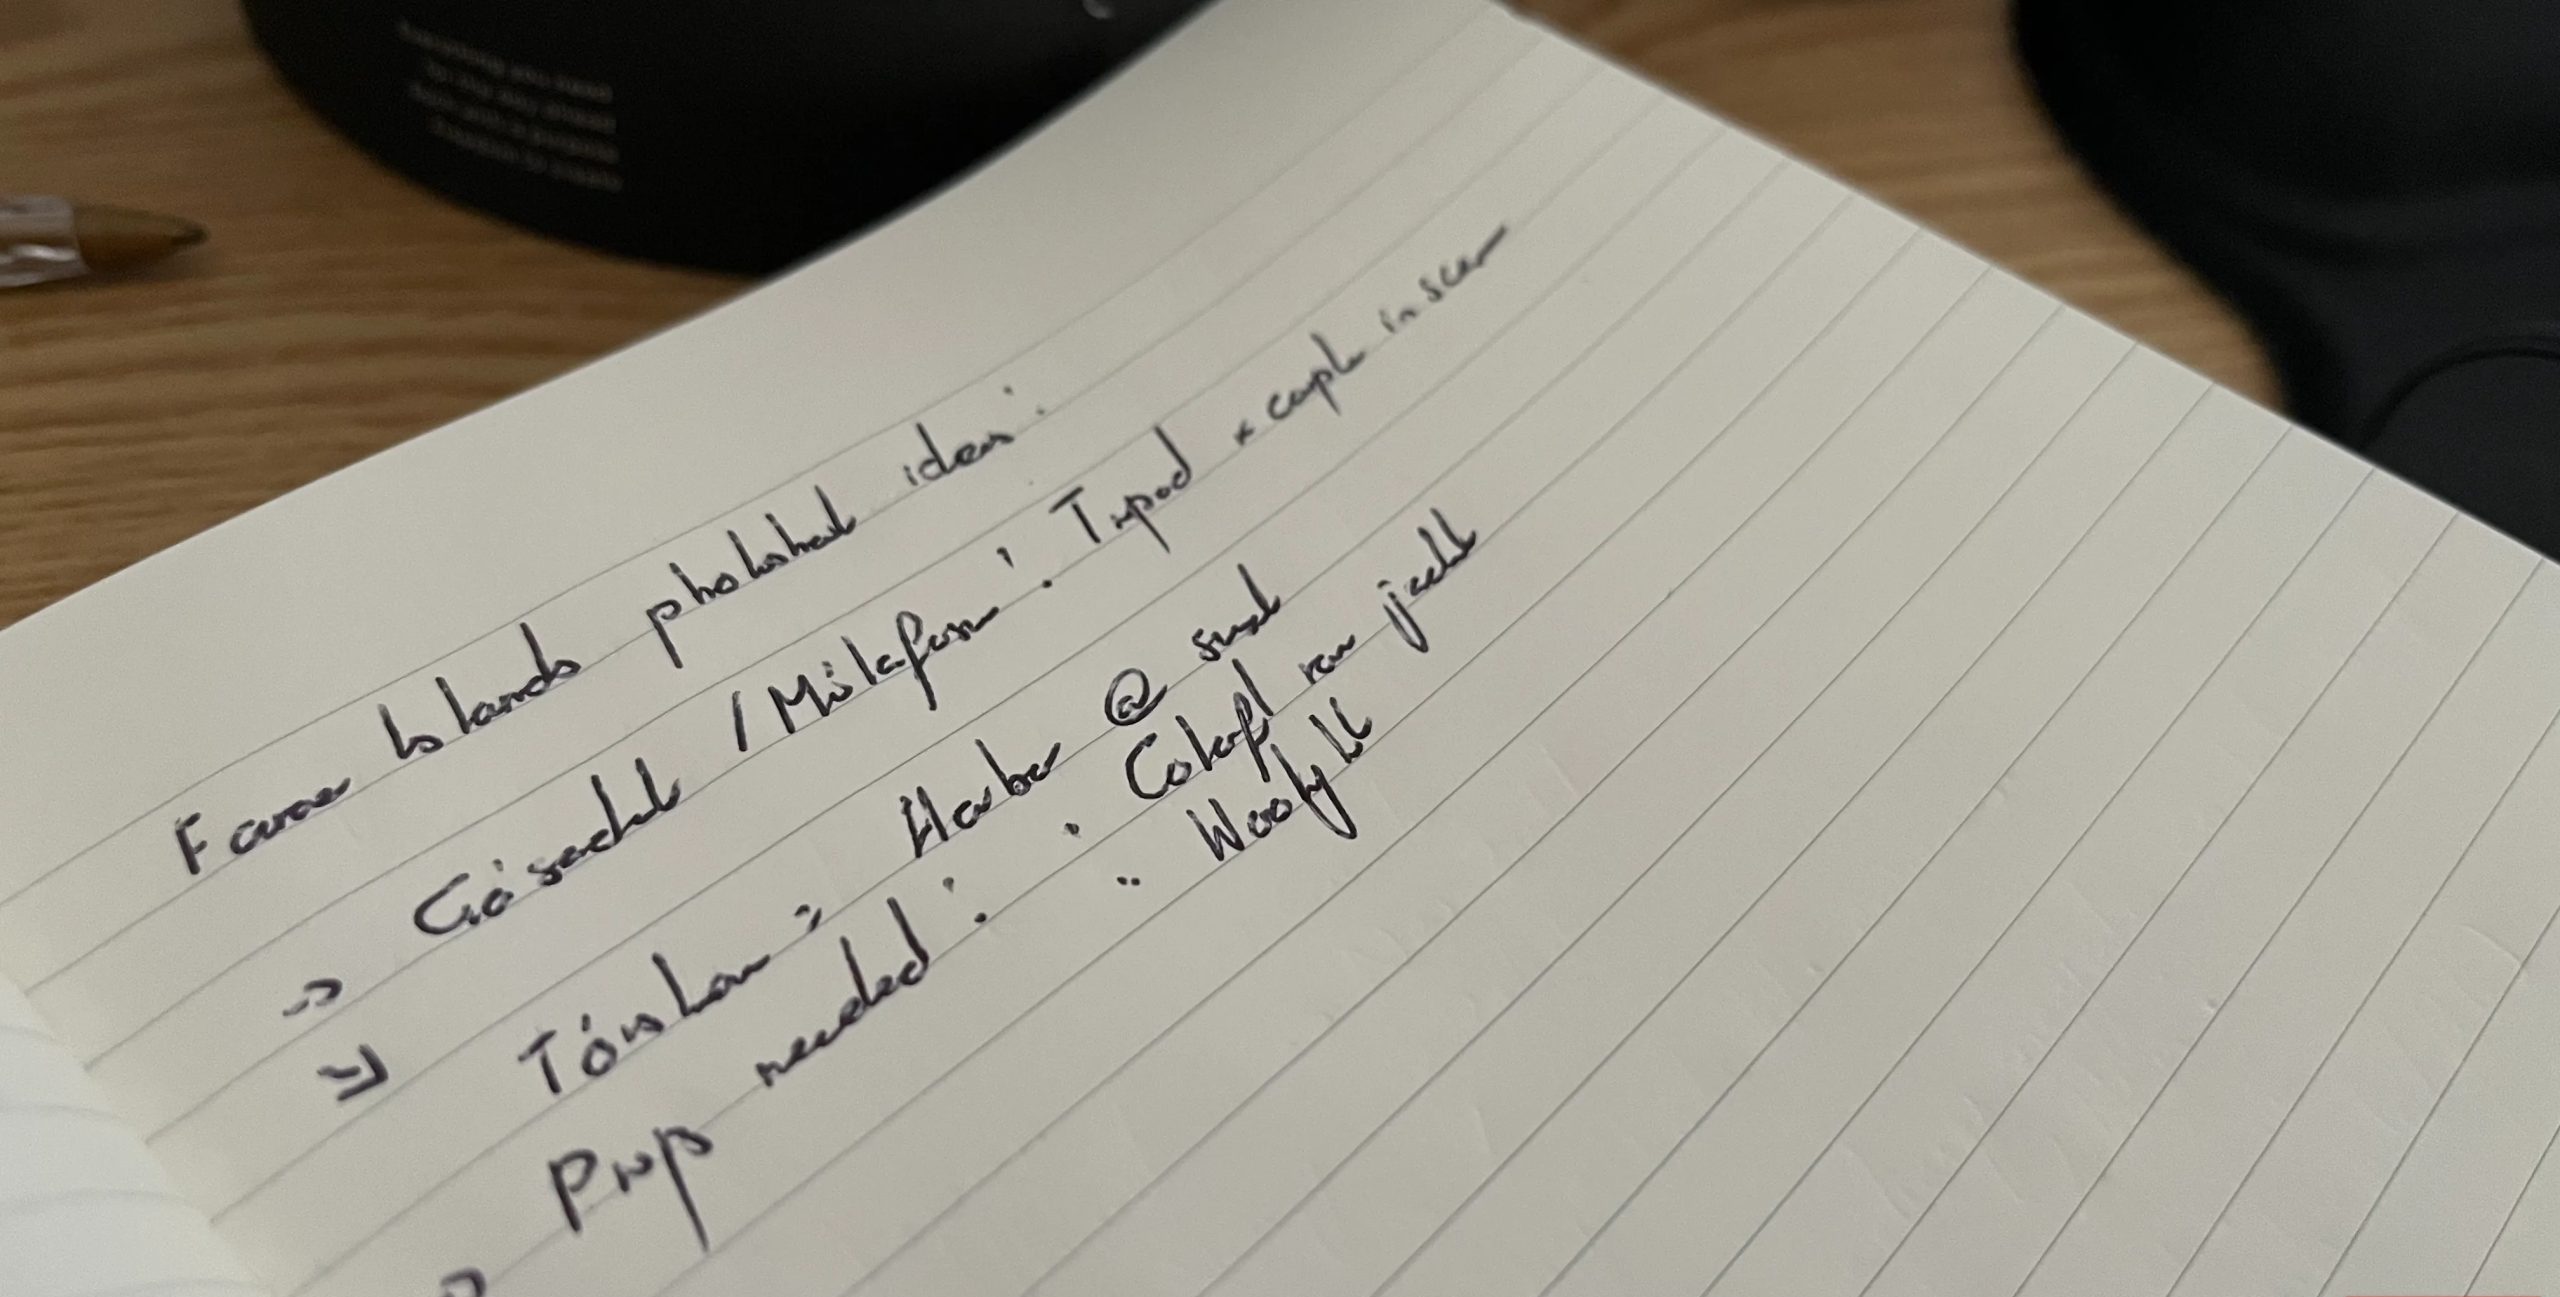 Faroe Islands photoshoot ideas:
→ Gásadalur / Múlafossur: Tripod + couple in scene
→ Tórshavn: Harbor @ sunset
Props needed: • Colorful rain jacket
•• Wooly hat